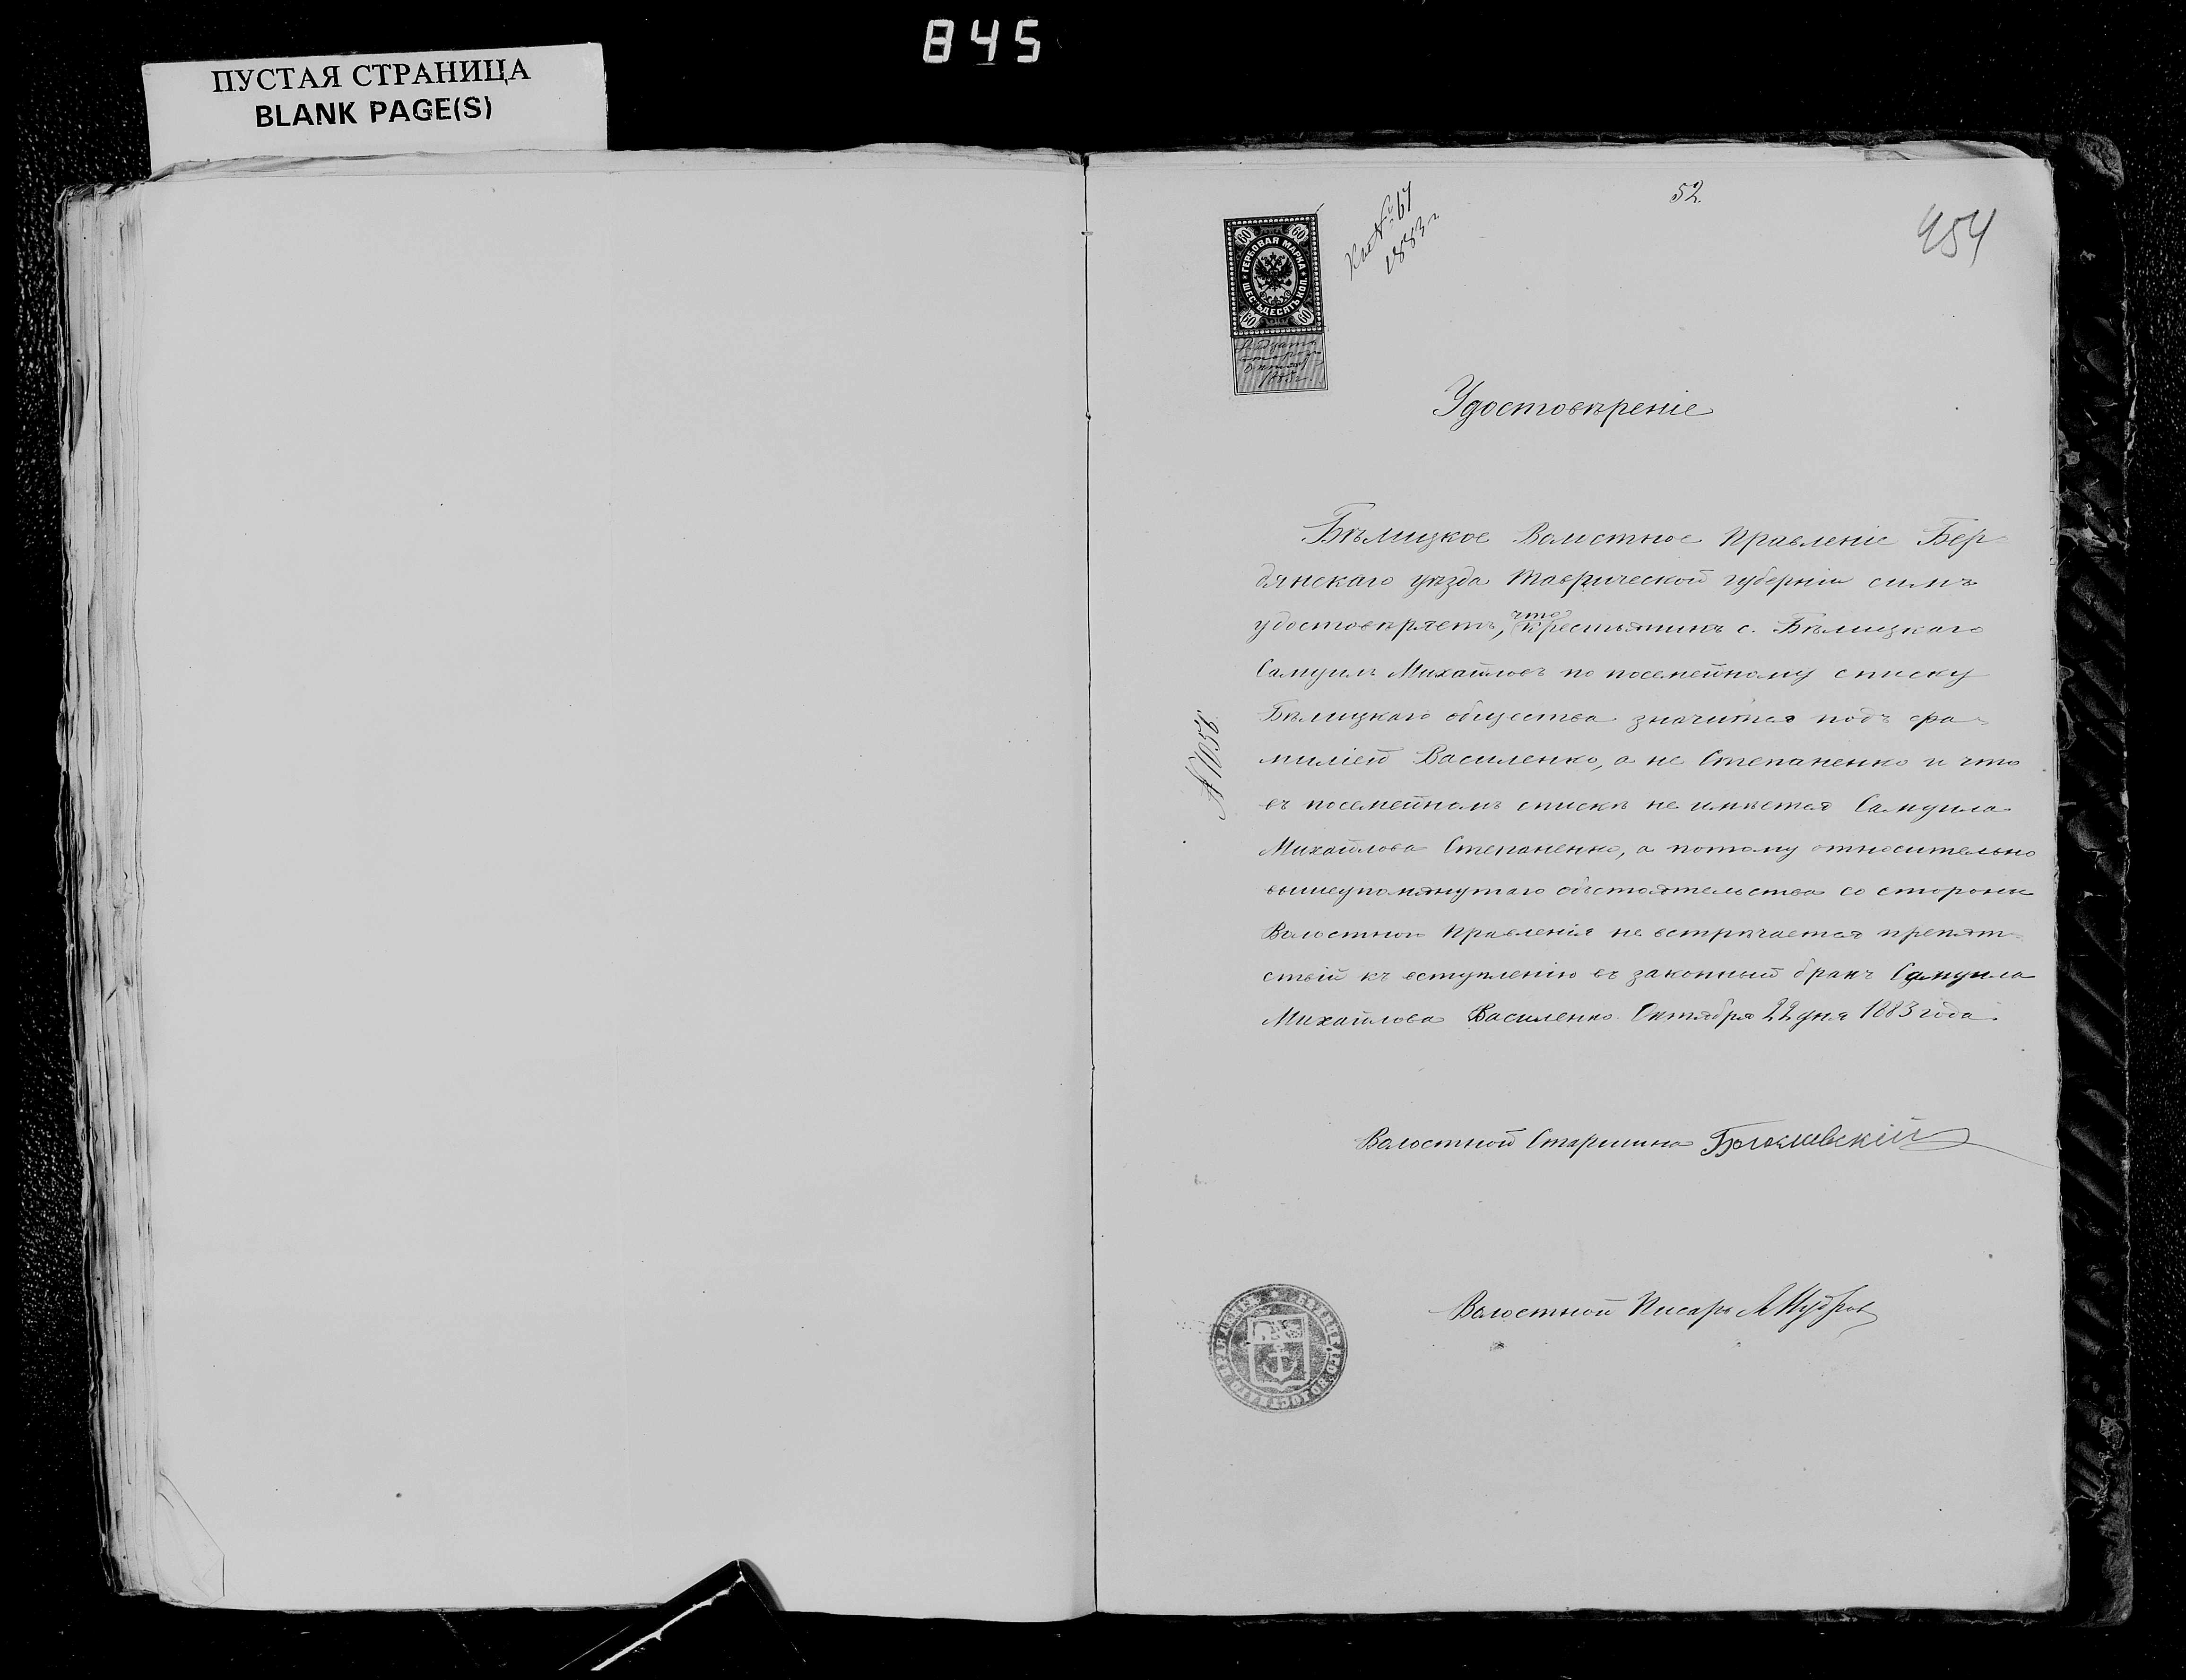 845
ПУСТАЯ СТРАНИЦА
BLANK PAGE(S)
52.
454
Къ № 67
1883 г.
60 60
ГЕРБОВАЯ МАРКА
ШЕСТЬДЕСЯТЪ КОП.
60 60
Двадцать
второго
Октября
1883 г.
Удостовѣреніе
Бѣлицкое Волостное Правленіе Бер-
дянскаго уѣзда Таврической губерніи симъ
удостовѣряетъ, что крестьянинъ с. Бѣлицкаго
Самуилъ Михайловъ по посемейному списку
Бѣлицкаго общества значится подъ фа-
миліей Василенко, а не Степаненко и что
въ посемейномъ спискѣ не имѣется Самуила
Михайлова Степаненко, а потому относительно
вышеупомянутаго обстоятельства со стороны
Волостного Правленія не встрѣчается препят-
ствій къ вступленію въ законный бракъ Самуила
Михайлова Василенко. Октября 22 дня 1883 года.
№ 1056
Волостной Старшина
Волостной Писарь